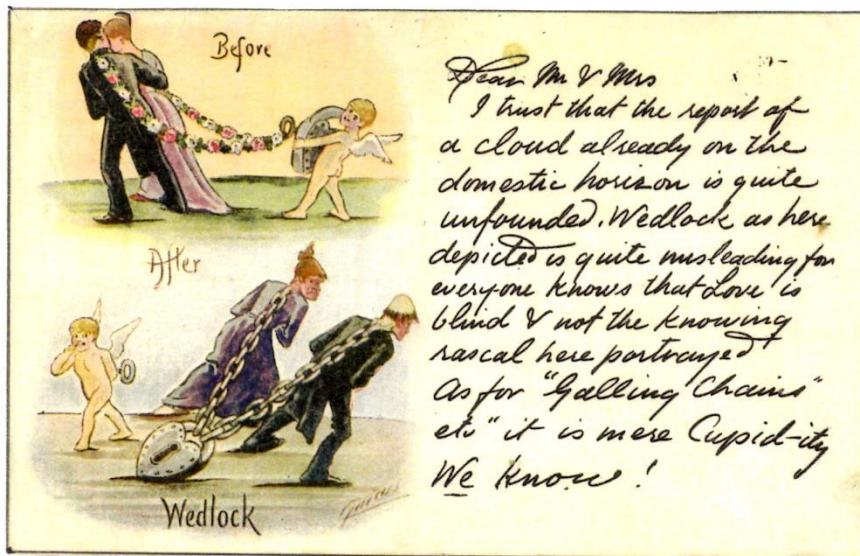 Before
After
Wedlock
Dear Mr & Mrs
I trust that the report of
a cloud already on the
domestic horizon is quite
unfounded. Wedlock as here
depicted is quite misleading for
everyone knows that Love is
blind & not the knowing
rascal here portrayed
As for "Galling Chains"
etc" it is mere Cupid-ity
We know!